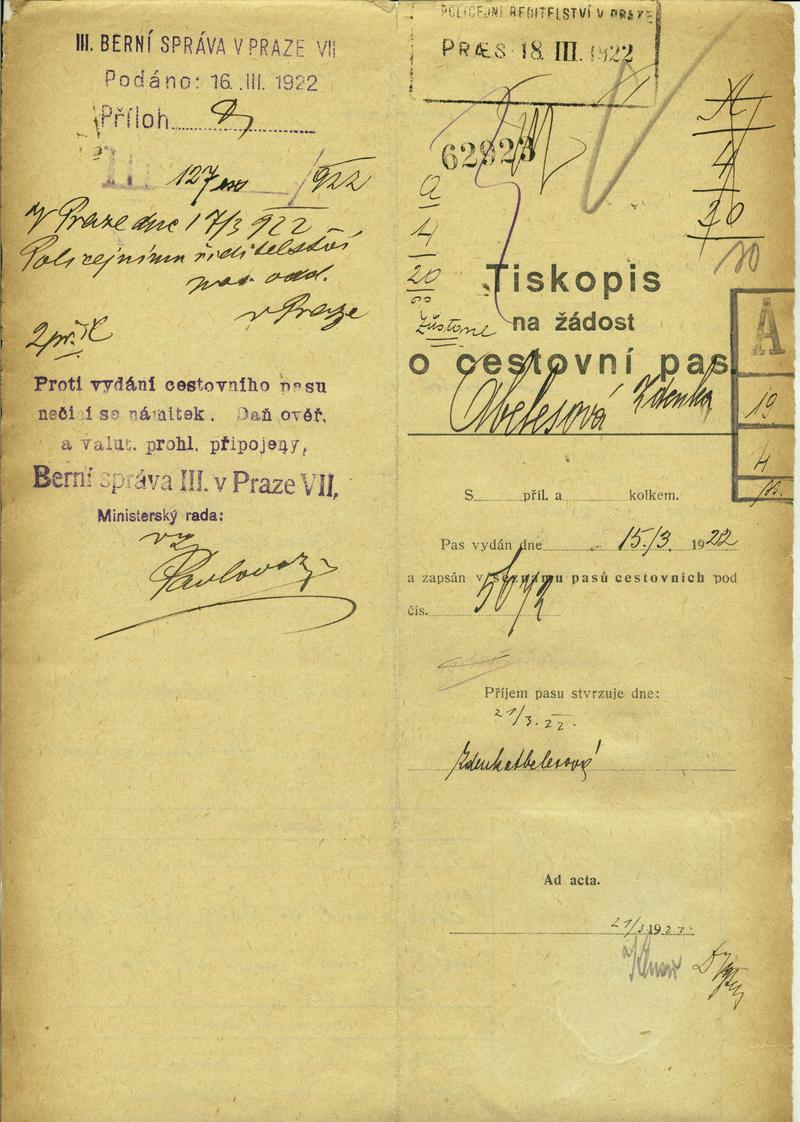 III. BERNÍ SPRÁVA V PRAZE VII
Podáno: 16. III. 1922
Příloh
127 /922
V Praze dne 17/3 922
Policejnímu ředitelství
pas. odd.
v Praze
Proti vydání cestovního pasu
nečiní se námitek. Daň ověř.
a valut. prohl. připojeny,
Berní správa III. v Praze VII,
Ministerský rada:
vz
POLICEJNÍ ŘEDITELSTVÍ V PRAZE
PRÆS 18. III. 1922
62923
A
4
20
4
20
Zůstane
Tiskopis
na žádost
o cestovní pas
Abelesová Zdenka
A
19
4
S příl. a kolkem.
Pas vydán dne 15./3. 1922
a zapsán v seznamu pasů cestovních pod
čís.
Příjem pasu stvrzuje dne:
21/3. 22.
Zdenka Abelesová
Ad acta.